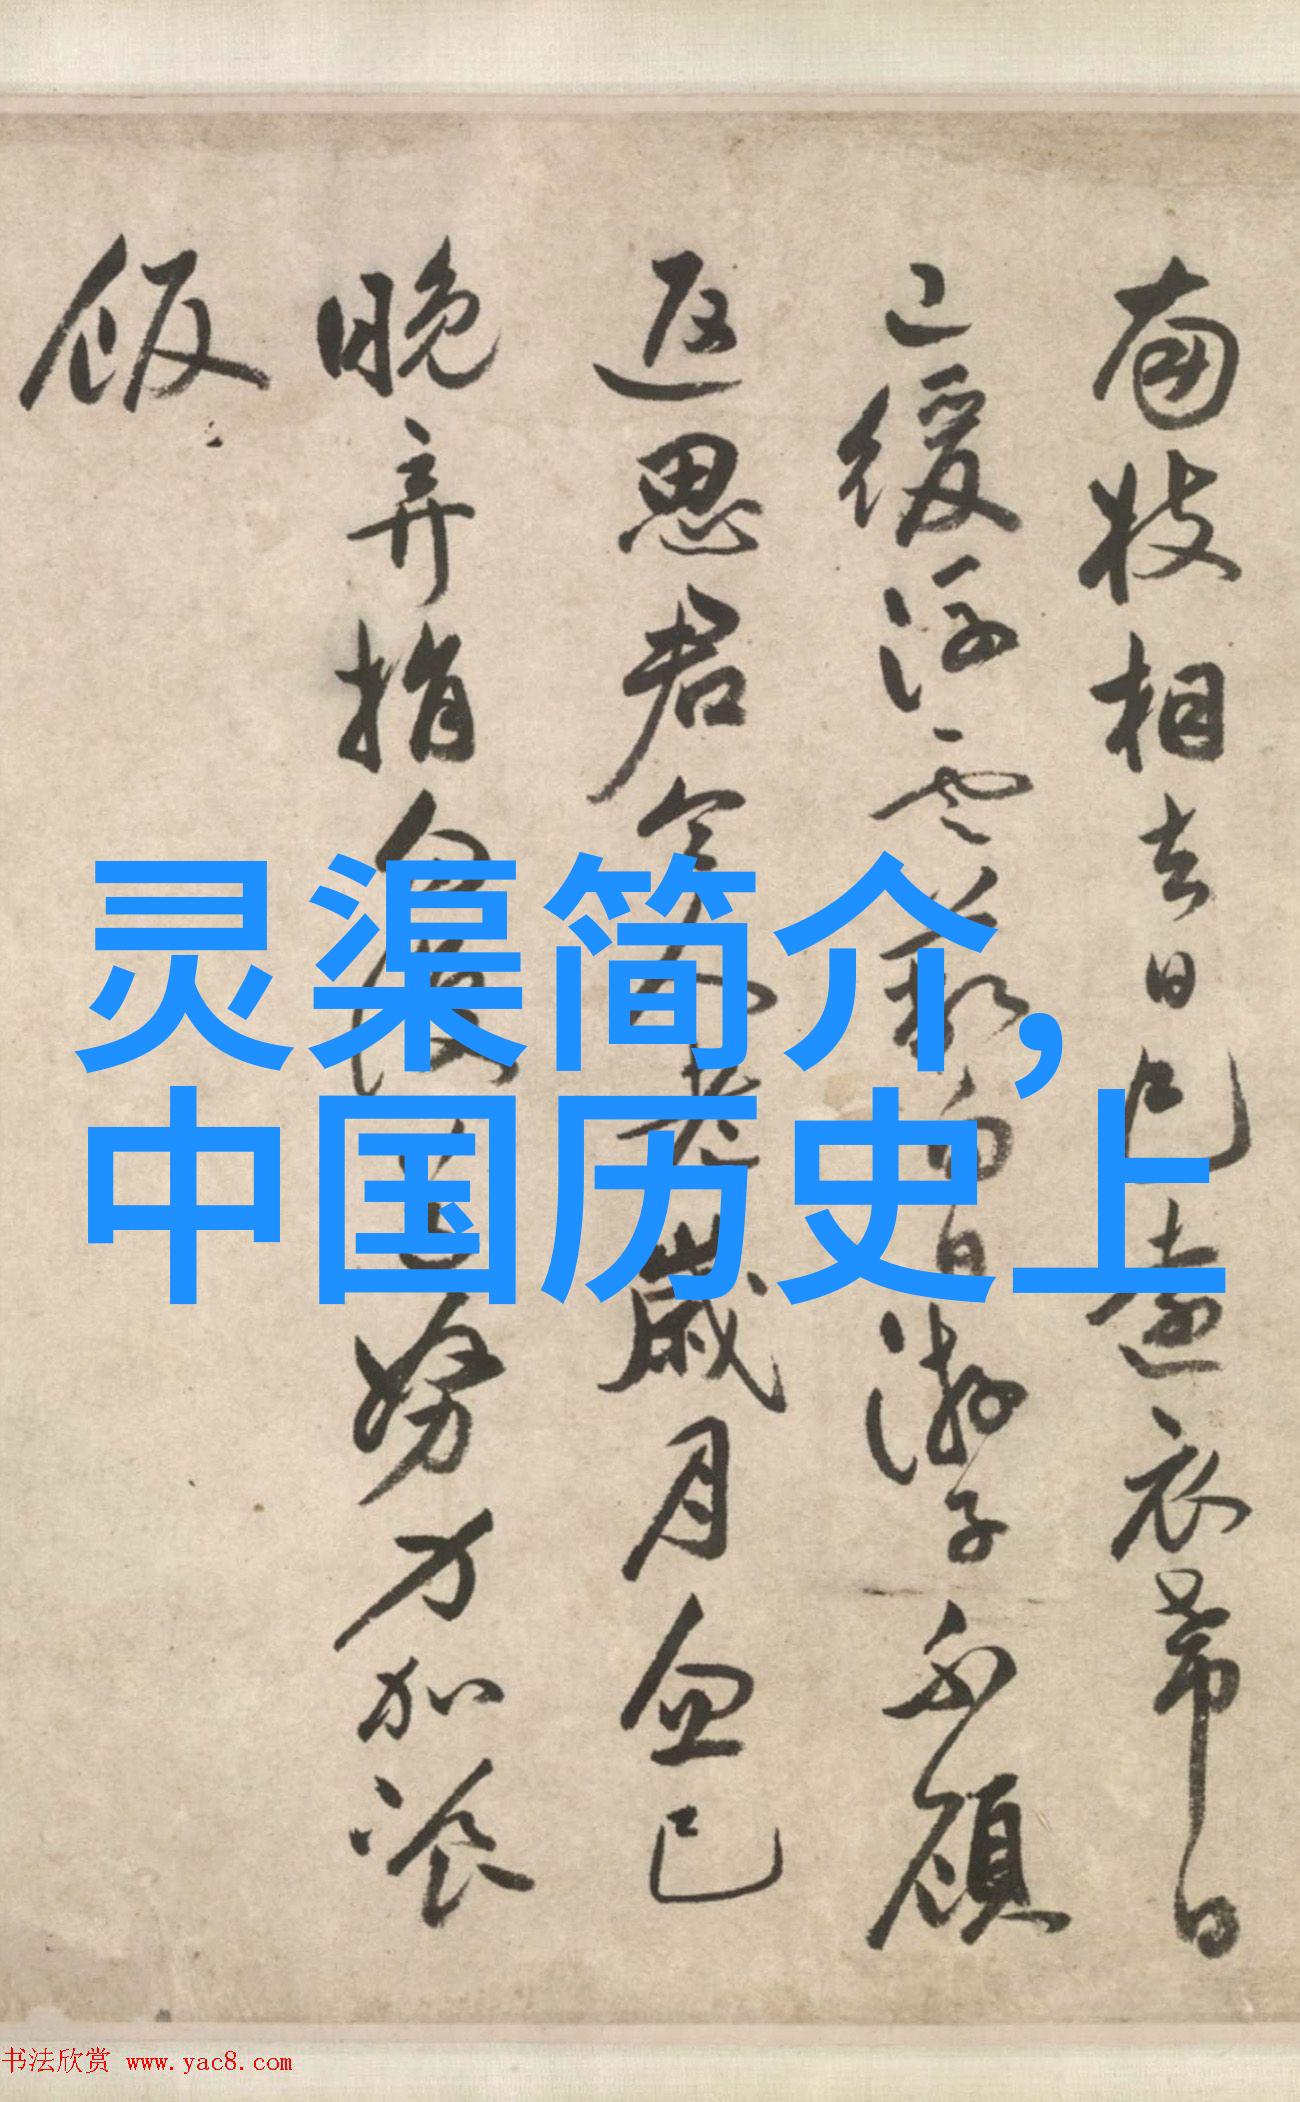 南枝相去日已远衣带日
已缓浮云蔽白日游子不顾
返思君令人老岁月忽已
晚弃捐勿复道努力加餐
饭
灵渠简介,
中国历史上
书法欣赏 www.yac8.com